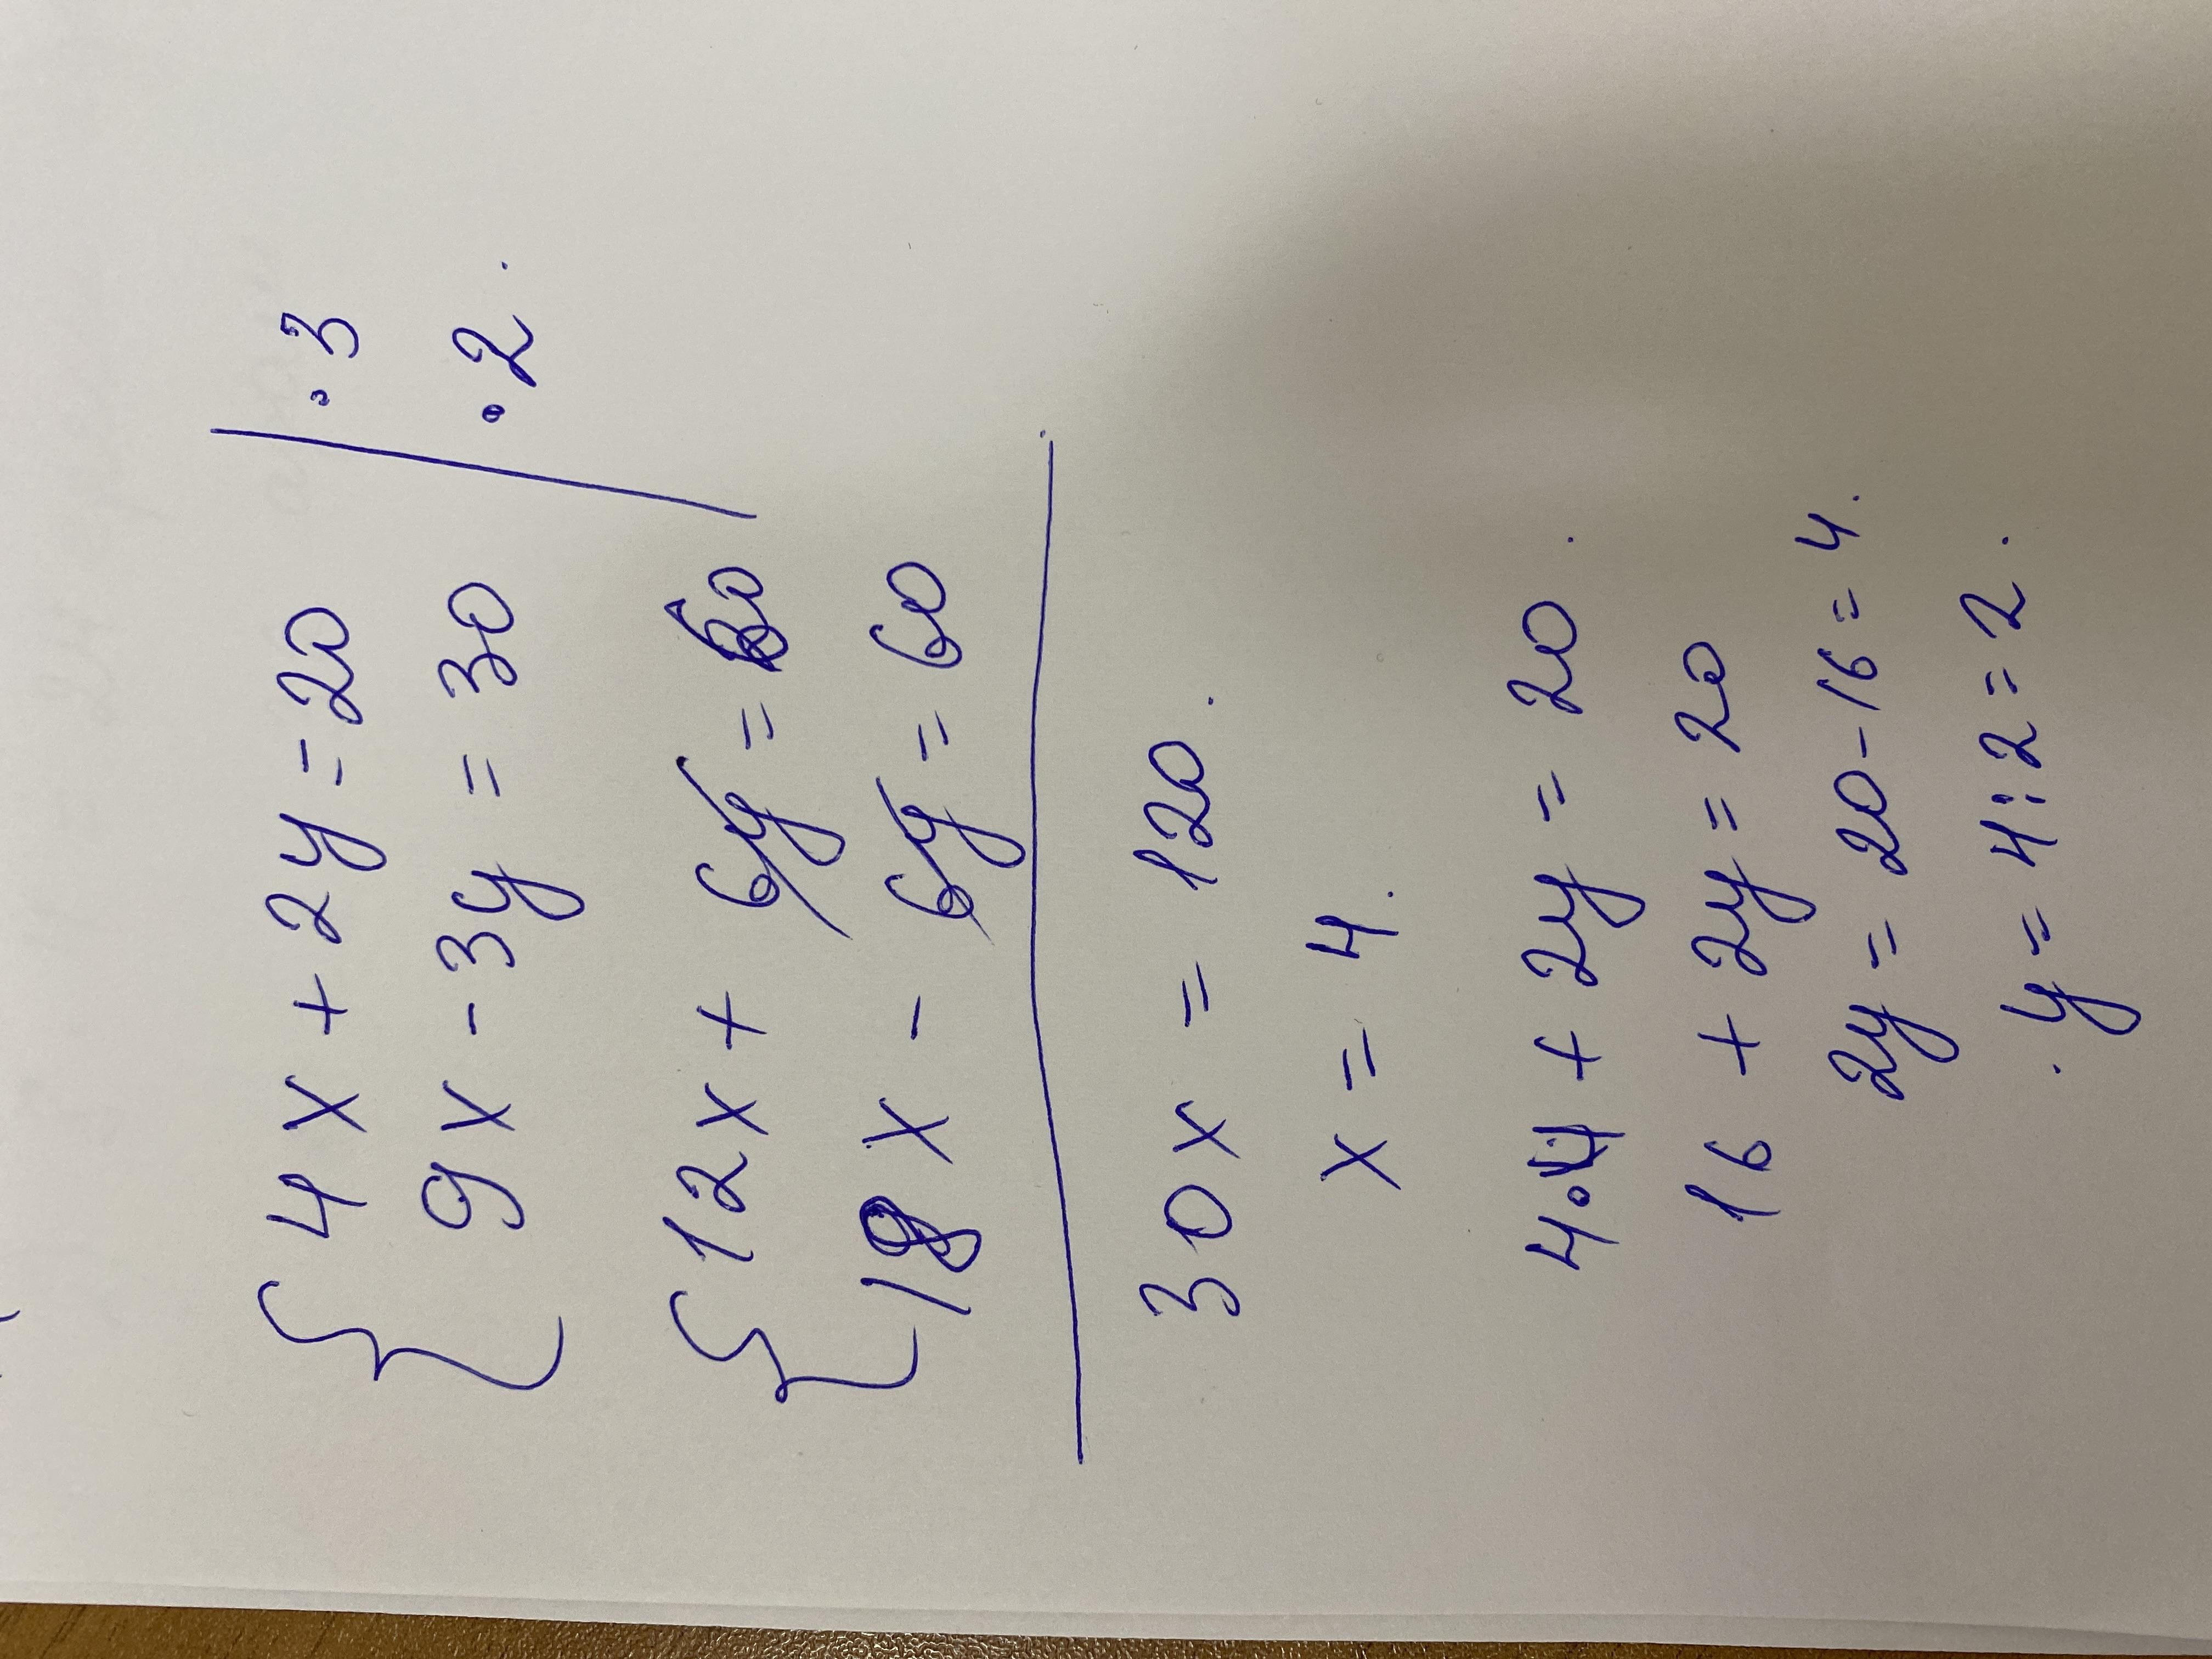 4x + 2y = 20 | · 3
9x - 3y = 30 | · 2.
12x + 6y = 60
18x - 6y = 60
30x = 120.
x = 4.
4·4 + 2y = 20.
16 + 2y = 20
2y = 20 - 16 = 4.
y = 4 : 2 = 2.